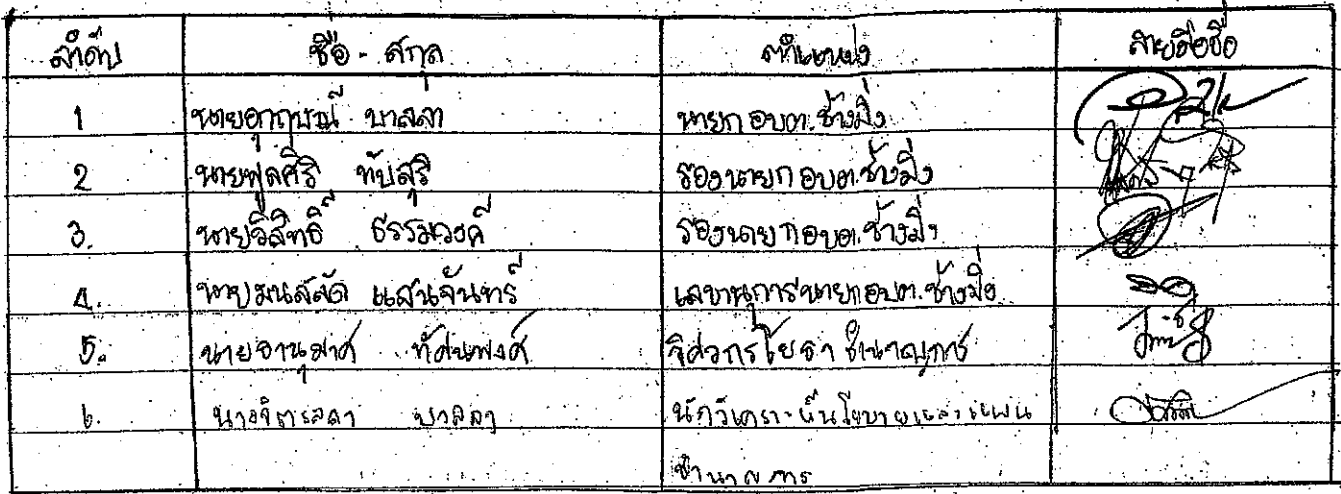 ลำดับ ชื่อ - สกุล ตำแหน่ง ลายมือชื่อ
1 นายอุกฤษณ์ บาลลา นายก อบต.ช้างมิ่ง
2 นายพูลศิริ ทับสุริ รองนายก อบต.ช้างมิ่ง
3. นายวิสิทธิ์ ธรรมวงค์ รองนายกอบต.ช้างมิ่ง
4. นายมนสลัด แสนจันทร์ เลขานุการนายกอบต.ช้างมิ่ง
5. นายอานุมาศ ทัศนพงค์ วิศวกรโยธา ชำนาญการ
6. นางจิตรลดา บาลลา นักวิเคราะห์นโยบายและแผน
ชำนาญการ